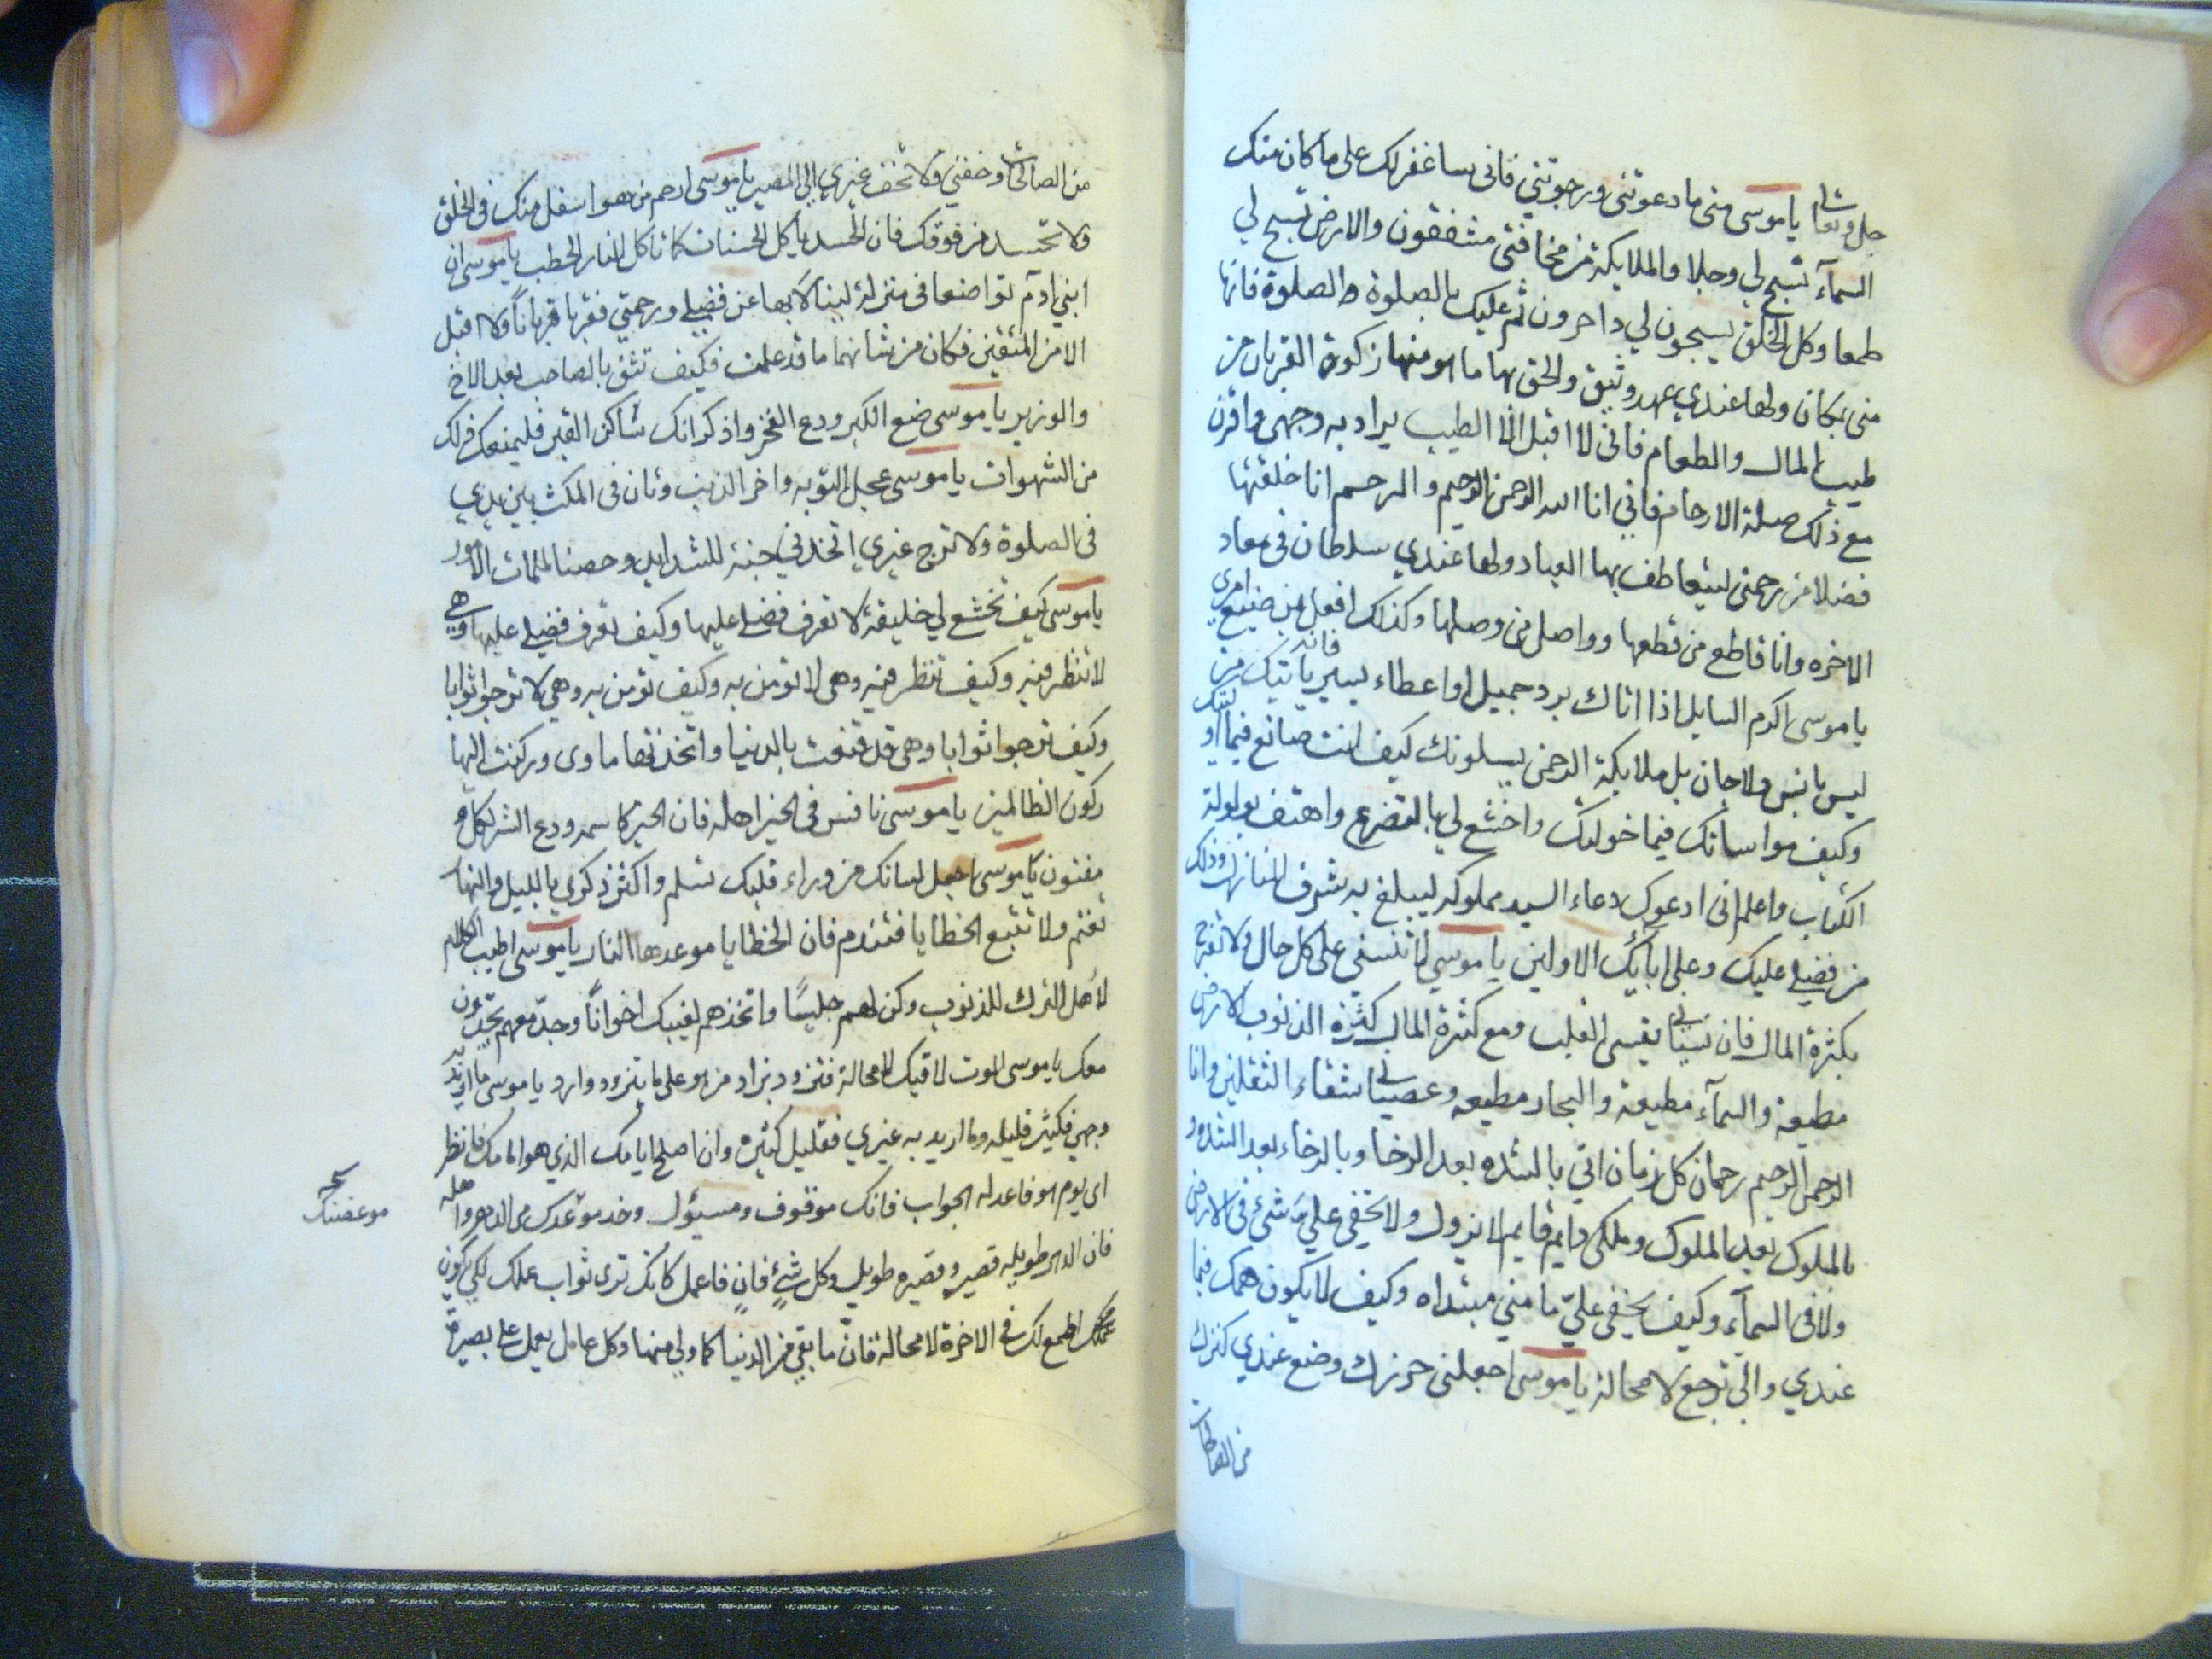 جل وتعا يا موسى متى ما دعوتنى ورجوتنى فانى ساغفر لك على ما كان منك
السمآء تسبح لي وجلا والملايكة من مخافتى مشفقون والارض تسبح لي
طمعا وكل الخلق يسبحون لي داخرون ثم عليك بالصلوة والصلوة فانها
منى بمكان ولها عندي عهد وثيق والحق بها ما هو منها زكوة القربان من
طيب المال والطعام فانى لا اقبل الا الطيب يراد به وجهى واقرن
مع ذلك صلة الارحام فاني انا الله الرحمن الرحيم والرحم انا خلقتها
فضلا من رحمتى ليتعاطف بها العباد ولها عندي سلطان في معاد
الاخره وانا قاطع من قطعها وواصل من وصلها وكذلك افعل بمن ضيع امري
يا موسى اكرم السايل اذا اتاك برد جميل او اعطاء يسير فانه ياتيك من
ليس بانس ولا جان بل ملايكة الرحمن يبلونك كيف انت صانع فيما اوليتك
وكيف مواساتك فيما خولتك واخشع لي بالتضرع واهتف بولولة
الكتاب واعلم انى ادعوك دعاء السيد مملوكه ليبلغ به شرف المنازل وذلك
من فضلي عليك وعلى ابائك الاولين يا موسى لا تنسني على كل حال ولا تفرح
بكثرة المال فان نسياني يقسى القلب ومع كثرة المال كثرة الذنوب الارض
مطيعة والسمآء مطيعة والبحار مطيعه وعصياني شقاء الثقلين وانا
الرحمن الرحيم رحمان كل زمان اتي بالشده بعد الرخا وبالرخاء بعد الشده و
بالملوك بعد الملوك وملكى دايم قايم لا يزول ولا يخفى علي شئ في الارض
ولا في السمآء وكيف يخفى عليّ ما مني مبتداه وكيف لا يكون همك فيما
عندي والي ترجع لا محالة يا موسى اجعلنى حرزك وضع عندي كنزك
من الصالحات
من الصالحات وخفني ولا تخف غيري الي المصير يا موسى ارحم من هو اسفل منك في الخلق
ولا تحسد من فوقك فان الحسد ياكل الحسنات كما تاكل النار الحطب يا موسى ان
ابني ادم تواضعا في منزلة لينالا بها من فضلي ورحمتي فقربا قربانًا ولا اقبل
الا من المتقين فكان من شانهما ما قد علمت فكيف تثق بالصاحب بعد الاخ
والوزير يا موسى ضع الكبر ودع الفخر واذكر انك ساكن القبر فليمنعك ذلك
من الشهوات يا موسى عجل التوبه واخر الذنب وتان في المكث بين يدي
في الصلوة ولا ترج غيري اتخذني جنة للشدايد وحصنا لملمات الامور
يا موسى كيف تخشع لي خليقة لا تعرف فضلي عليها وكيف تعرف فضلي عليها وهي
لا تنظر فيه وكيف تنظر فيه وهى لا تومن به وكيف تومن به وهي لا ترجوا ثوابا
وكيف ترجوا ثوابا وهي قد قنعت بالدنيا واتخذتها ماوى وركنت اليها
ركون الظالمين يا موسى نافس في الخير اهله فان الخير كاسمه ودع الشر لكل
مفتون يا موسى اجعل لسانك من وراء قلبك تسلم واكثر ذكري بالليل والنهار
تغنم ولا تتبع الخطايا فتندم فان الخطايا موعدها النار يا موسى اطيب الكلام
لاهل الترك للذنوب وكن لهم جليسًا واتخذهم لغيبك اخوانًا وجدّ معهم يجدّون
معك يا موسى الموت لاقيك لا محالة فتزود بزاد من هو على ما يتزود وارد يا موسى ما اريد به
وجهي فكثير قليله وما اريد به غيري فقليل كثيره وان اصلح ايامك الذي هو امامك فانظر
اى يوم هو فاعد له الجواب فانك موقوف ومسئول وخذ موعدك من الدهر واهله
موعظتك
فان الدهر طويله قصير وقصيره طويل وكل شئ فانٍ فاعمل كانك ترى ثواب عملك لكي يكون
اطمع لك في الاخرة لا محالة فان ما بقي من الدنيا كما ولي منها وكل عامل يعمل على بصيرة